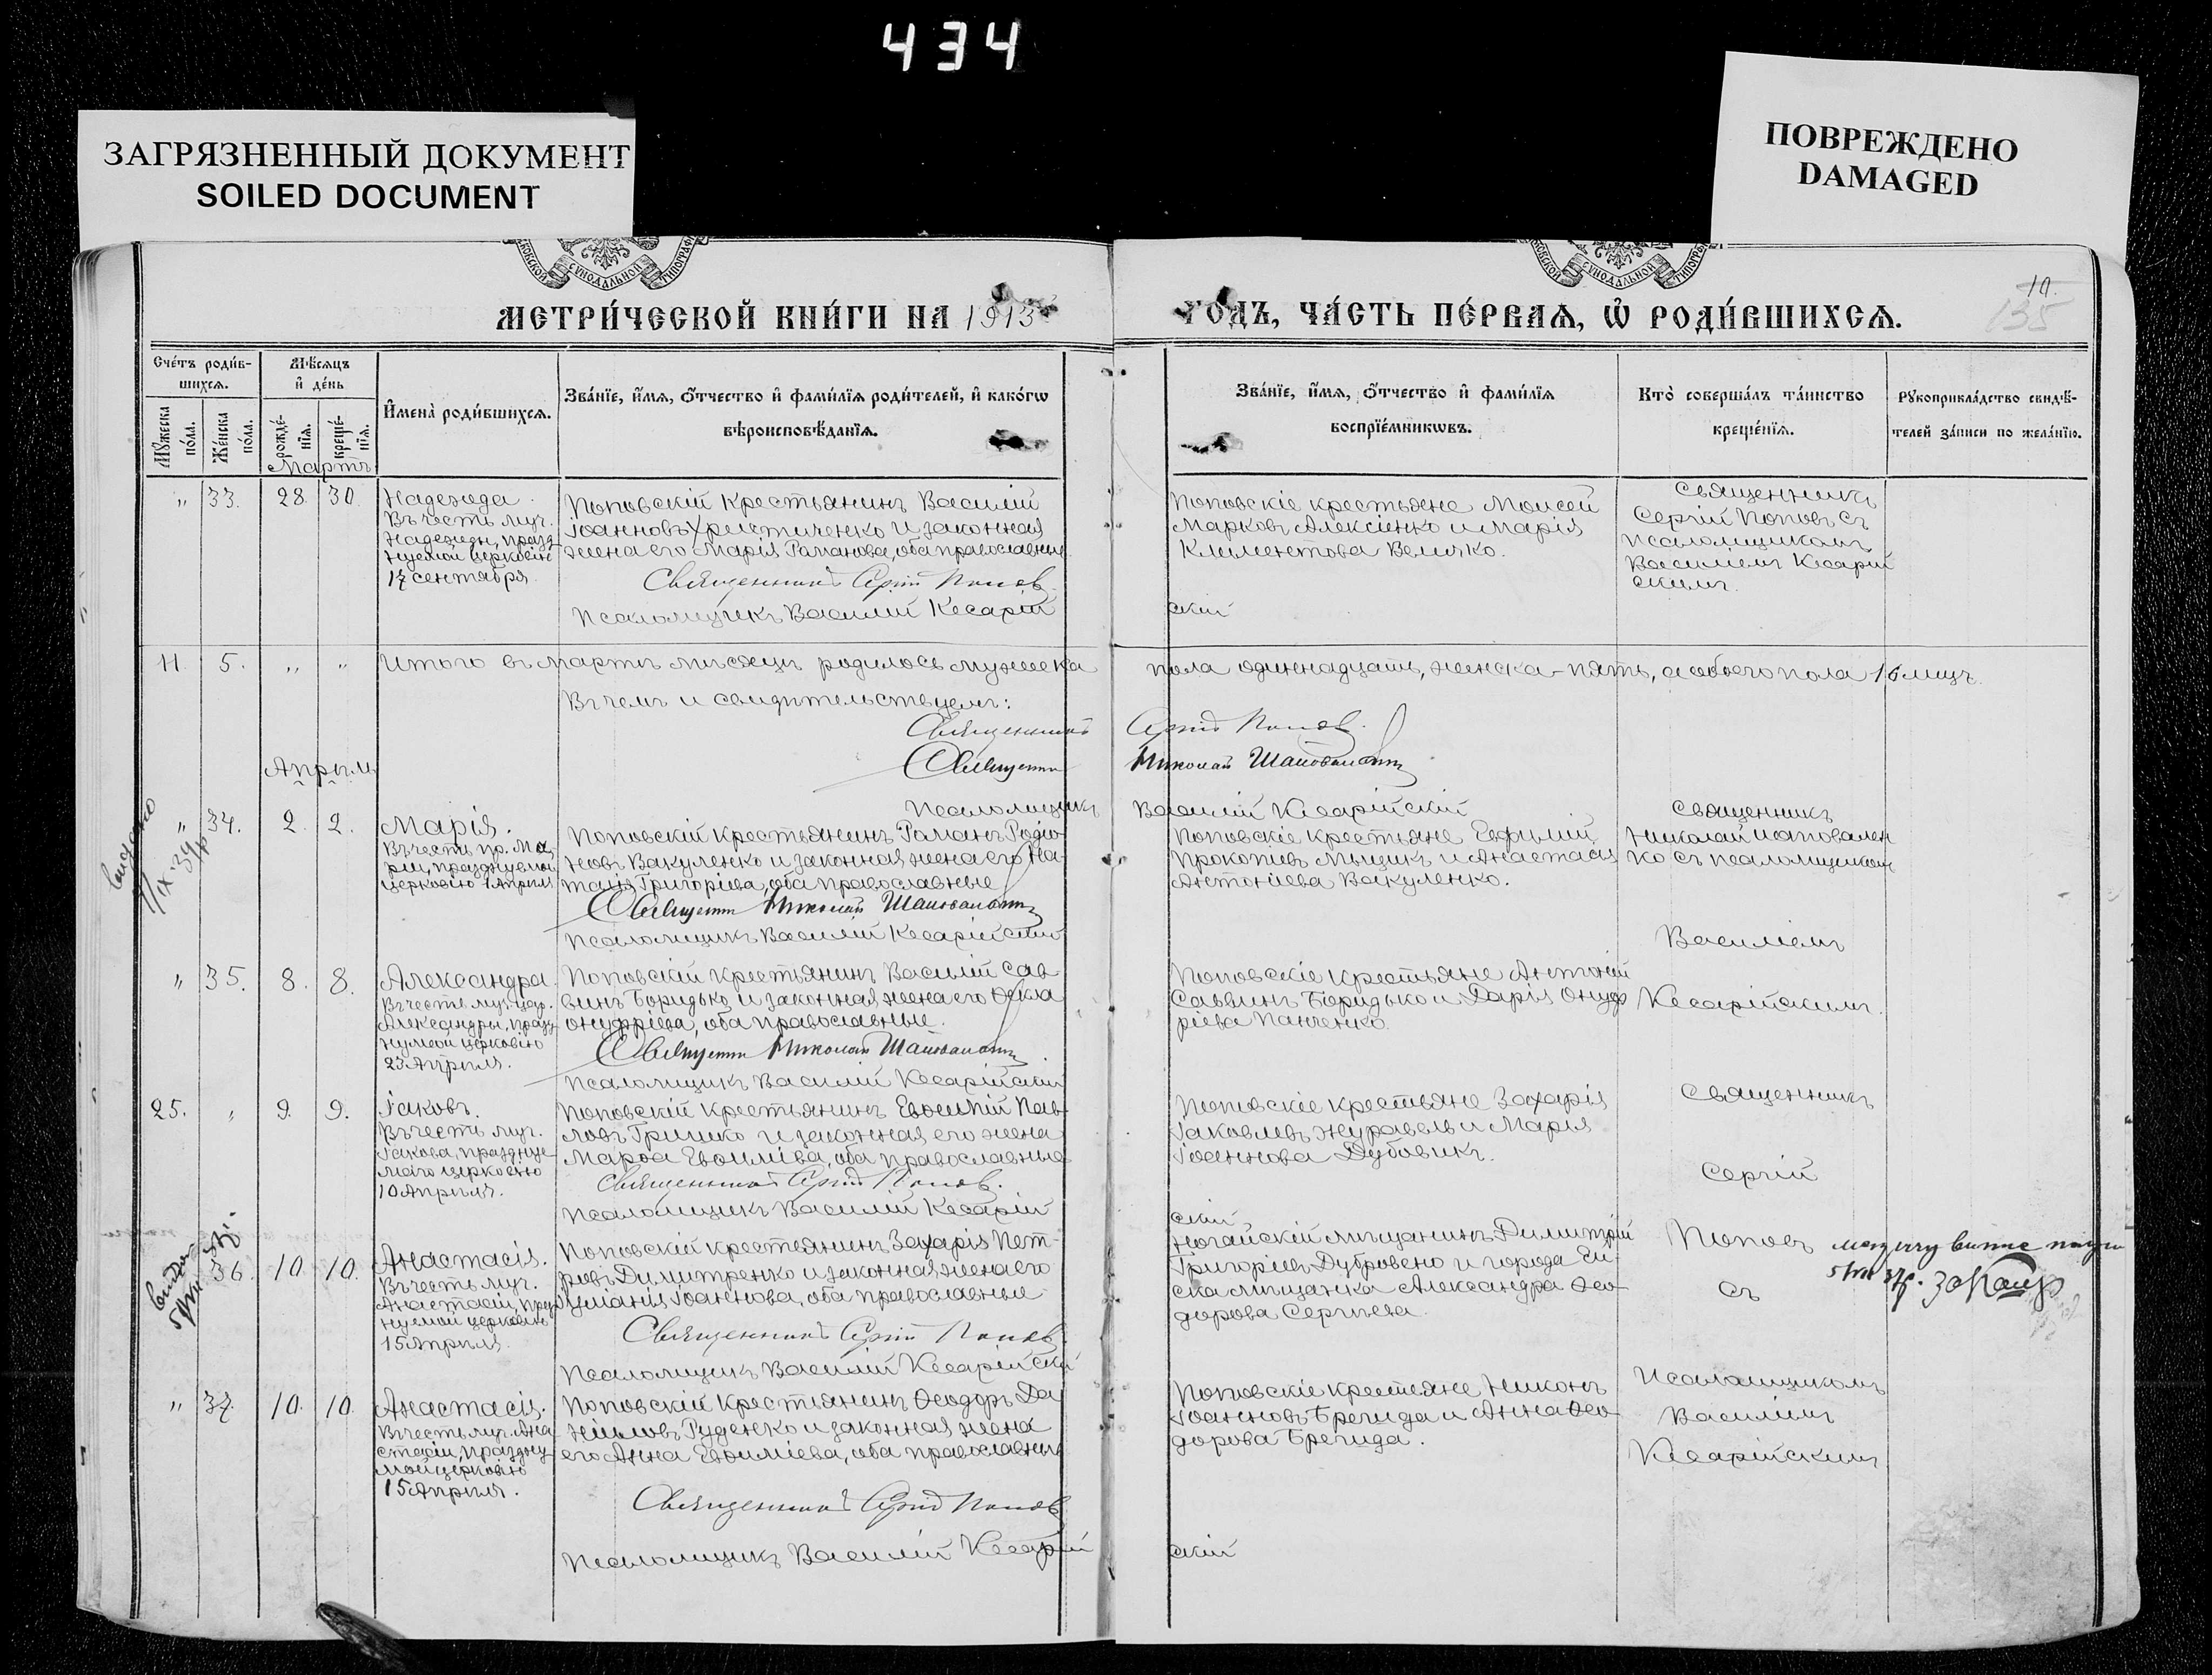 434
ЗАГРЯЗНЕННЫЙ ДОКУМЕНТ
SOILED DOCUMENT
ПОВРЕЖДЕНО
DAMAGED
МЕТРИ́ЧЕСКОЙ КНИ́ГИ НА 1913
ГОДЪ, ЧА́СТЬ ПЕ́РВАЯ, Ѡ РОДИ́ВШИХСЯ.
10.
135
Сче́тъ роди́в-
шихся.
Мѣ́сяцъ
и҆ де́нь
Му́жеска
по́ла.
Же́нска
по́ла.
рожде́-
нїя.
креще́-
нїя.
И҆мена̀ роди́вшихся.
Зва́нїе, и҆́мя, ѻ҆́тчество и҆ фами́лїя роди́телей, и҆ како́гѡ
вѣроисповѣ́данїя.
Зва́нїе, и҆́мя, ѻ҆́тчество и҆ фами́лїя
воспрїе́мникѡвъ.
Кто̀ соверша́лъ та́инство
креще́нїя.
Рꙋкоприкла́дство свидѣ́-
телей за́писи по жела́нїю.
Мартъ
" 33. 28 30
Надежда
Въ честь муч.
Надежды, празд-
нуемой церковію
17 сентября.
Поповскій крестьянинъ Василій
Іоанновъ Христиченко и законная
жена его Марія Романова, оба православные
Священникъ Сергій Поповъ.
Псаломщикъ Василій Кесарій
скій
Поповскіе крестьяне Моисей
Марковъ Алексіенко и Марія
Климентова Величко.
Священникъ
Сергій Поповъ съ
псаломщикомъ
Василіемъ Кесарій
скимъ.
11. 5. " "
Итого въ мартѣ мѣсяцѣ родилось мужеска
пола одиннадцать, женска – пять, а обоего пола 16 лицъ.
Въ чемъ и свидѣтельствуемъ:
Священникъ Сергій Поповъ.
Священникъ Николай Шаповаленко
Псаломщикъ Василій Кесарійскій
Апрѣль
" 34. 2. 2.
Марія.
Въ честь пр. Ма-
ріи, празднуемой
церковію 1 Апрѣля
Поповскій крестьянинъ Романъ Родіо-
новъ Вакуленко и законная жена его На-
талія Григоріева, оба православные
Священникъ Николай Шаповаленко
Псаломщикъ Василій Кесарійскій
Поповскіе крестьяне Евфимій
Прокопіевъ Мыцикъ и Анастасія
Антоніева Вакуленко.
Священникъ
Николай Шаповален
ко съ псаломщикомъ
Василіемъ
Кесарійскимъ.
" 35. 8. 8.
Александра.
Въ честь муч. цар.
Александры, празд-
нуемой церковію
23 Апрѣля.
Поповскій крестьянинъ Василій Сав
винъ Боридько и законная жена его Ѳекла
Онуфріева, оба православные.
Священникъ Николай Шаповаленко
Псаломщикъ Василій Кесарійскій
Поповскіе крестьяне Антоній
Саввинъ Боридько и Дарія Онуф
ріева Панченко.
25. " 9. 9.
Іаковъ.
Въ честь муч.
Іакова, празднуе-
маго церковію
10 Апрѣля.
Поповскій крестьянинъ Евѳимій Пав-
ловъ Гришко и законная его жена
Марѳа Евѳиміева, оба православные
Священникъ Сергій Поповъ.
Псаломщикъ Василій Кесарій
скій
Поповскіе крестьяне Захарія
Іаковлевъ Журавель и Марія
Іоаннова Дубовикъ.
Священникъ
Сергій
Поповъ
съ
Псаломщикомъ
Василіемъ
Кесарійскимъ
36. 10. 10.
Анастасія.
Въ честь муч.
Анастасіи, празд-
нуемой церковію
15 Апрѣля.
Поповскій крестьянинъ Захарія Пет-
ровъ Димитренко и законная жена его
Іуліанія Іоаннова, оба православные
Священникъ Сергій Поповъ
Псаломщикъ Василій Кесарійскій
Ногайскій мѣщанинъ Димитрій
Григоріевъ Дубровено и города Ей-
ска мѣщанка Александра Ѳео-
дорова Сергѣева.
" 37. 10. 10.
Анастасія.
Въ честь муч. Ана
стасіи, праздну-
мой церковію
15 Апрѣля.
Поповскій крестьянинъ Ѳеодоръ Да-
ніиловъ Руденко и законная жена
его Анна Евѳиміева, оба православные
Священникъ Сергій Поповъ
Псаломщикъ Василій Кесарій
скій
Поповскіе крестьяне Никонъ
Іоанновъ Брегида и Анна Ѳео-
дорова Брегида.